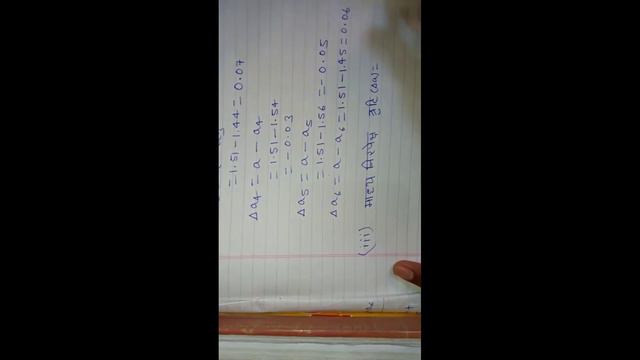 = 1.51 - 1.44 = 0.07
Δa₄ = a - a₄
= 1.51 - 1.54
= - 0.03
Δa₅ = a - a₅
= 1.51 - 1.56 = - 0.05
Δa₆ = a - a₆ = 1.51 - 1.45 = 0.06
(iii) माध्य निरपेक्ष त्रुटि (Δa) =